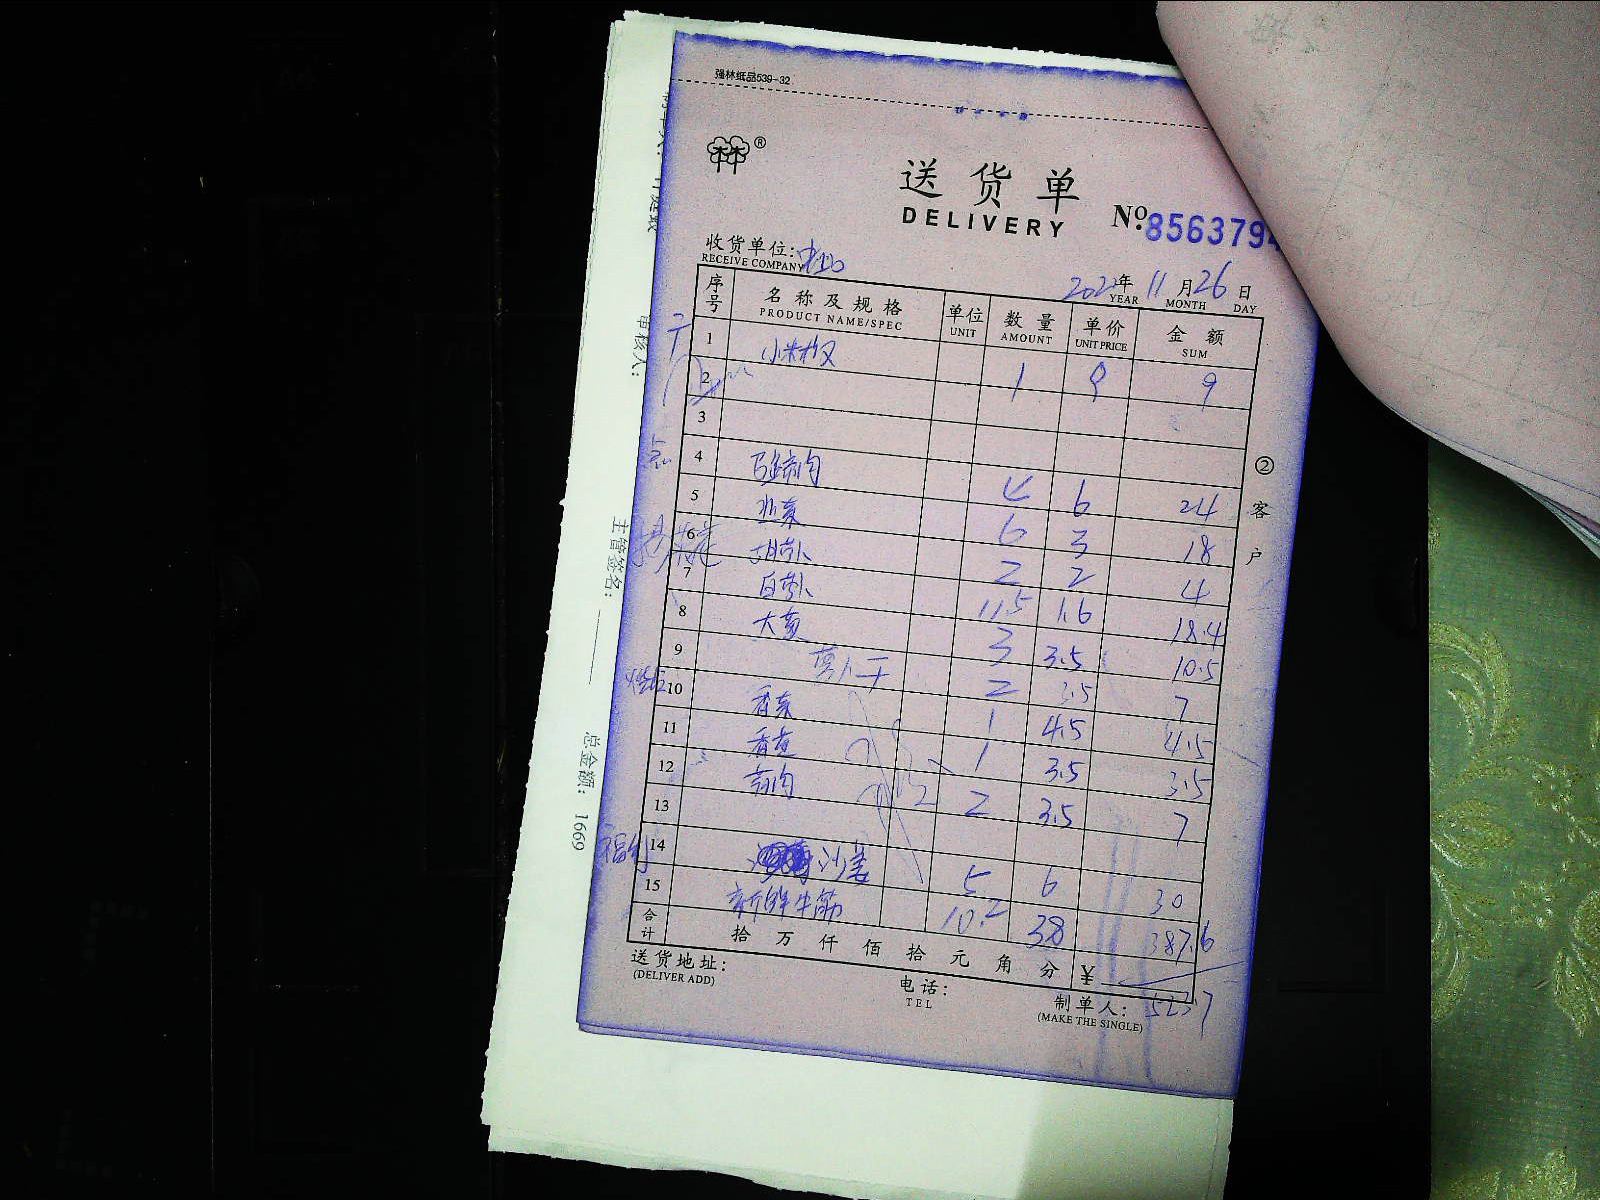 强林纸品539-32
®
送货单
DELIVERY
No: 8563794
收货单位:
RECEIVE COMPANY
2022年 11月 26日
YEAR MONTH DAY
序号 名称及规格 单位 数量 单价 金额
PRODUCT NAME/SPEC UNIT AMOUNT UNIT PRICE SUM
1 小米椒 1 9 9
2
3
4
5 4 6 24
6 6 3 18
7 胡萝卜 2 2 4
8 白萝卜 11.5 1.6 18.4
9 大葱 3 3.5 10.5
10 萝卜干 2 3.5 7
11 香菜 1 4.5 4.5
12 香葱 1 3.5 3.5
13 2 3.5 7
14 沙姜 5 6 30
15 新鲜牛筋 10.2 38 387.6
合计 拾 万 仟 佰 拾 元 角 分 ¥
523.7
送货地址:
(DELIVER ADD)
电话:
TEL
制单人:
(MAKE THE SINGLE)
②客户
审核人:
主管签名:
总金额: 1669
福利